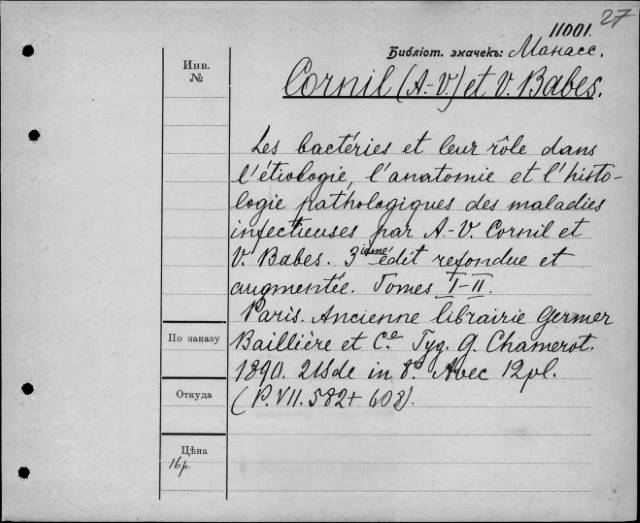 27
11001.
Библіот. значекъ: Манасс.
Инв.
№
Cornil (A-V.) et V. Babes.
Les bactéries et leur rôle dans
l'étiologie, l'anatomie et l'histo-
logie pathologiques des maladies
infectieuses par A-V. Cornil et
V. Babes. 3ième édit refondue et
augmentée. Tomes I-II.
Paris. Ancienne librairie Germer
По заказу
Baillière et Cº. Typ. G. Chamerot.
1890. in 8º Avec 12 pl.
Откуда
(P. VII. 582 + 608).
Цѣна
16р.